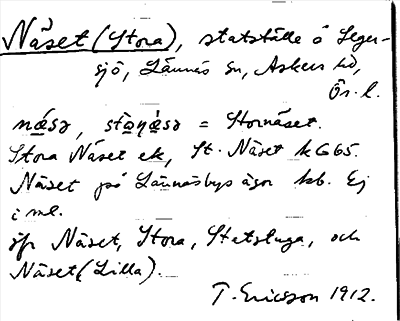 Näset (Stora), statställe ö Seger-
sjö, Lännäs sn, Askers hd,
Ör. l.
næ̀sə, stòṇǽsə = Stornäset.
Stora Näset ek, St. Näset kG65.
Näset på Lännäsbys ägor kb. Ej
i ml.
jfr Näset, Stora, Statstuga, och
Näset (Lilla).
T. Ericsson 1912.